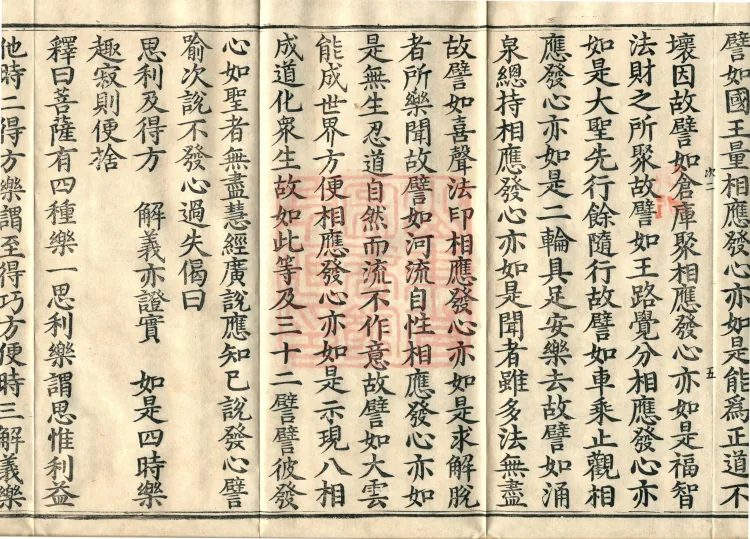 譬如國王量相應發心亦如是能爲正道不
次二
五
壞因故譬如倉庫聚相應發心亦如是福智
法財之所聚故譬如王路覺分相應發心亦
如是大聖先行餘隨行故譬如車乘止觀相
應發心亦如是二輪具足安樂去故譬如涌
泉總持相應發心亦如是聞者雖多法無盡
故譬如喜聲法印相應發心亦如是求解脫
者所樂聞故譬如河流自性相應發心亦如
是無生忍道自然而流不作意故譬如大雲
能成世界方便相應發心亦如是示現八相
成道化衆生故如此等及三十二譬譬彼發
心如聖者無盡慧經廣說應知已說發心譬
喻次說不發心過失偈曰
思利及得方　解義亦證實　如是四時樂
趣寂則便捨
釋曰菩薩有四種樂一思利樂謂思惟利益
他時二得方樂謂至得巧方便時三解義樂